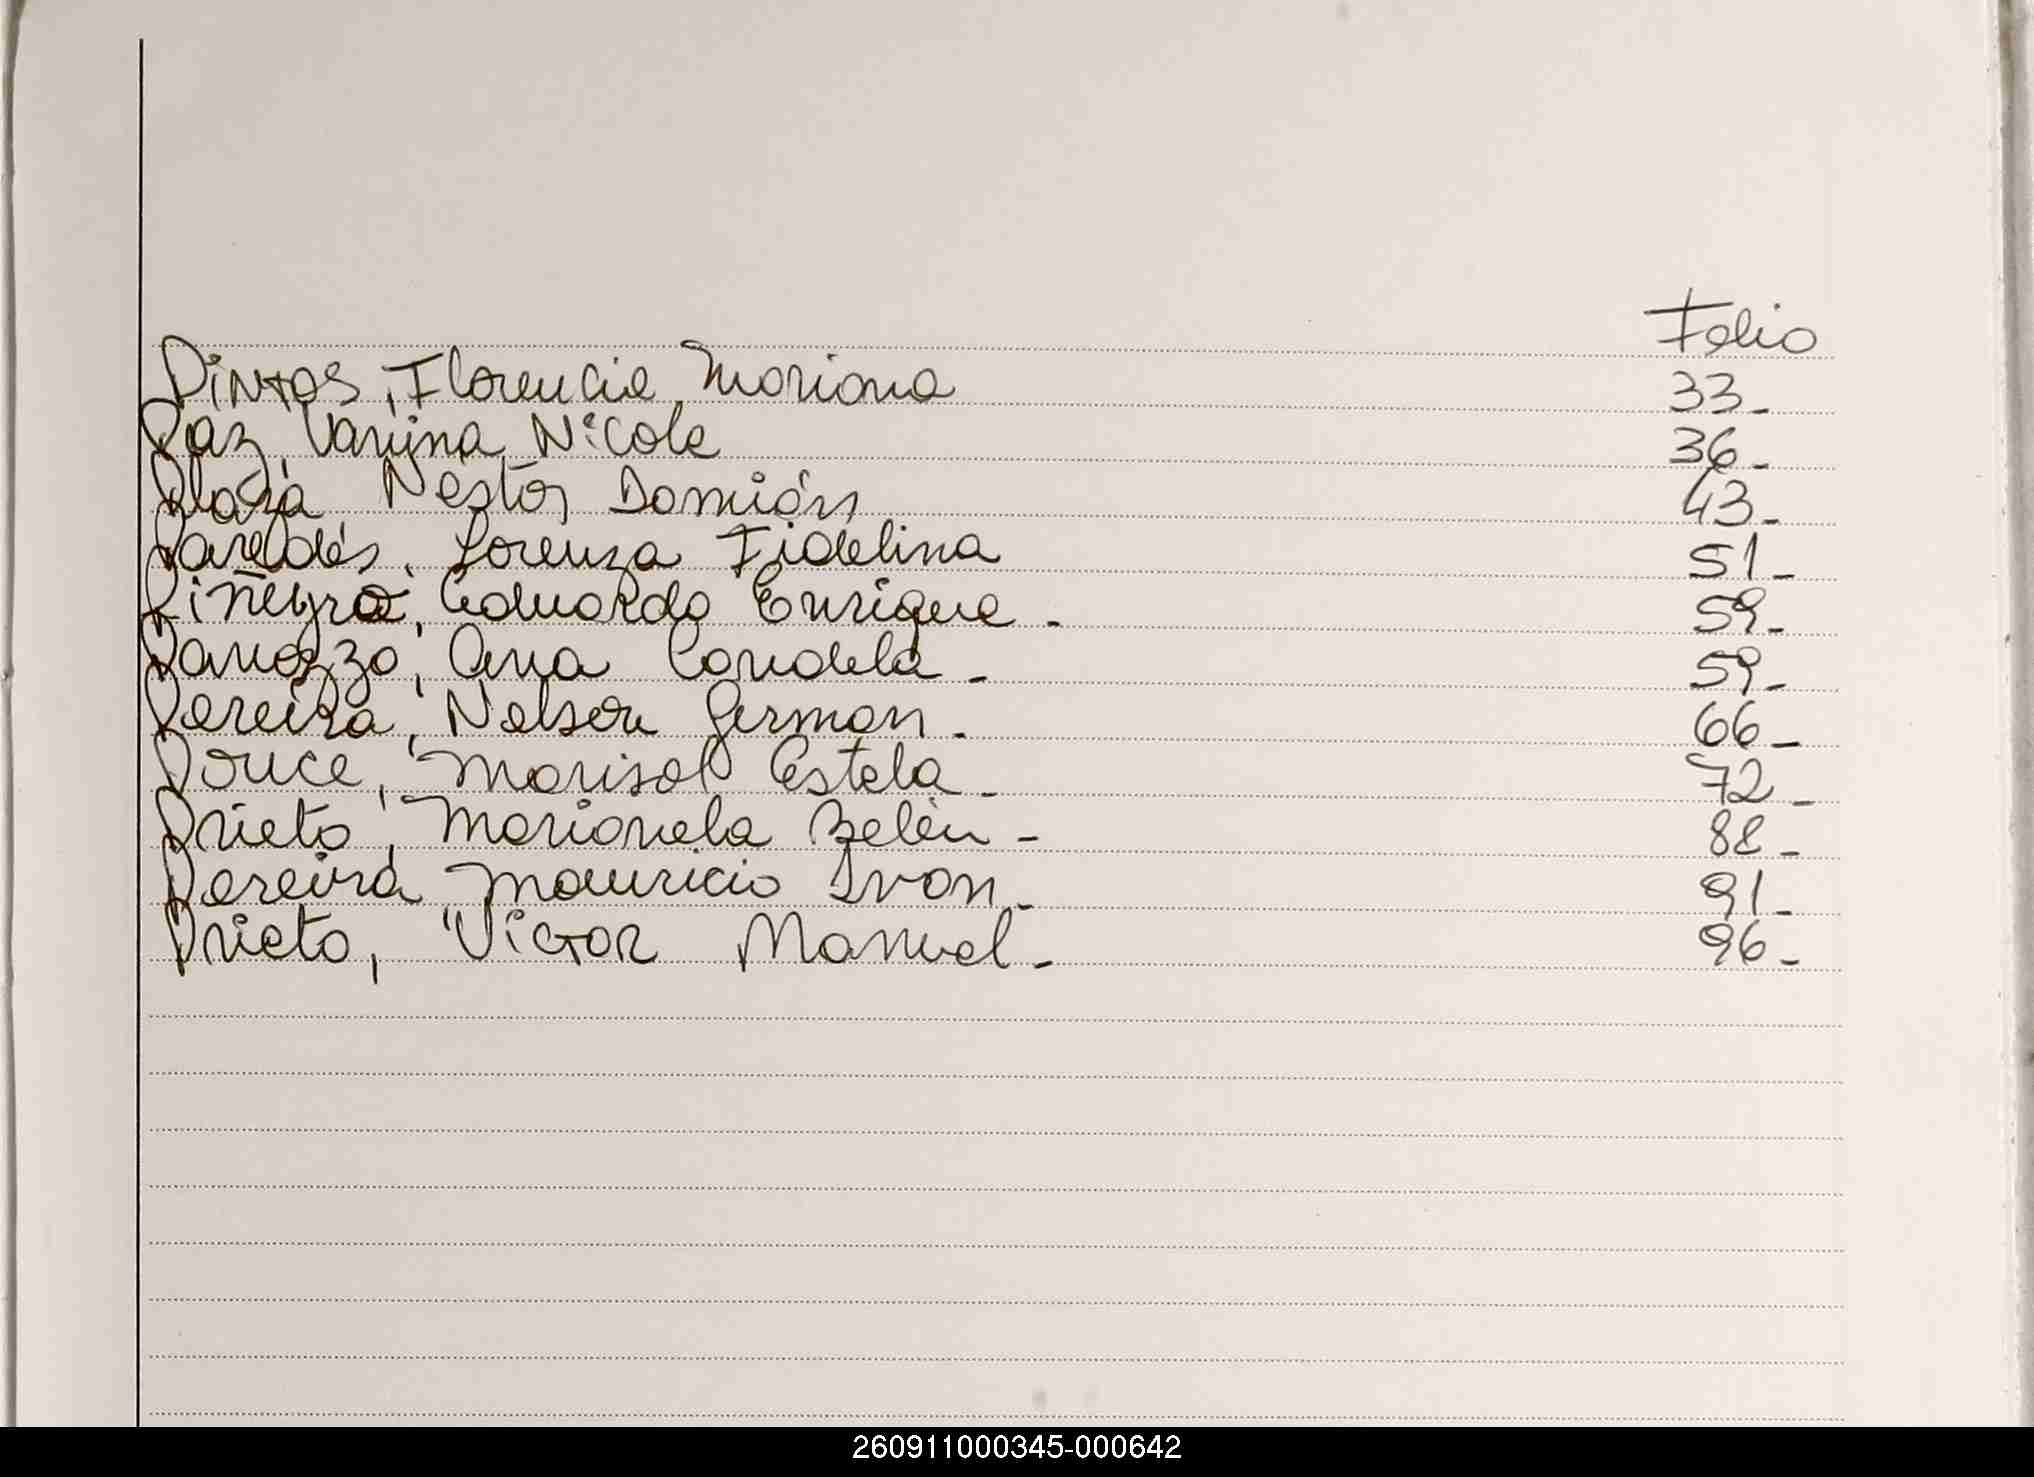 Folio
Pintos, Florencia Mariana 33-
Paz, Vanina Nicole 36-
Plaza Nestor Damián 43-
Paredes, Lorenza Fidelina 51-
Piñeyro, Eduardo Enrique - 59-
Panozzo, Ana Candela - 59-
Pereira, Nelson German - 66-
Ponce, Marisol Estela - 72-
Prieto, Marianela Belén - 88-
Pereira Mauricio Ivan - 91-
Prieto, Victor Manuel - 96-
260911000345-000642